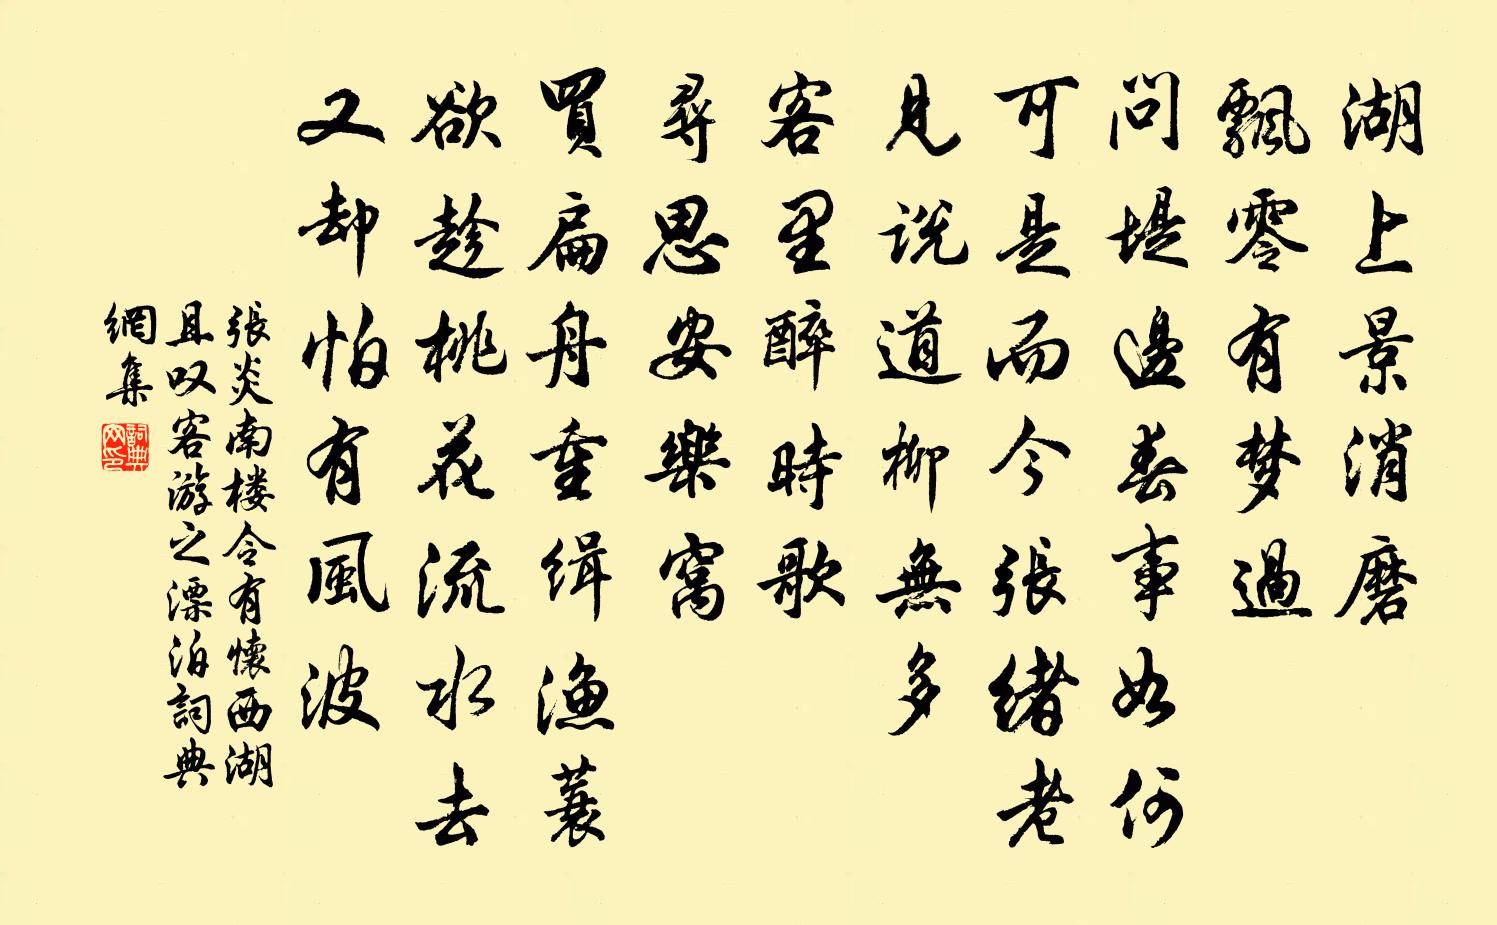 湖上景消磨
飄零有梦過
問堤邊春事如何
可是而今張緒老
見説道柳無多
客里醉時歌
尋思安樂窩
買扁舟重缉漁蓑
欲趁桃花流水去
又却怕有風波
張炎南楼令有懷西湖
且叹客游之漂泊詞典
網集
詞典网印